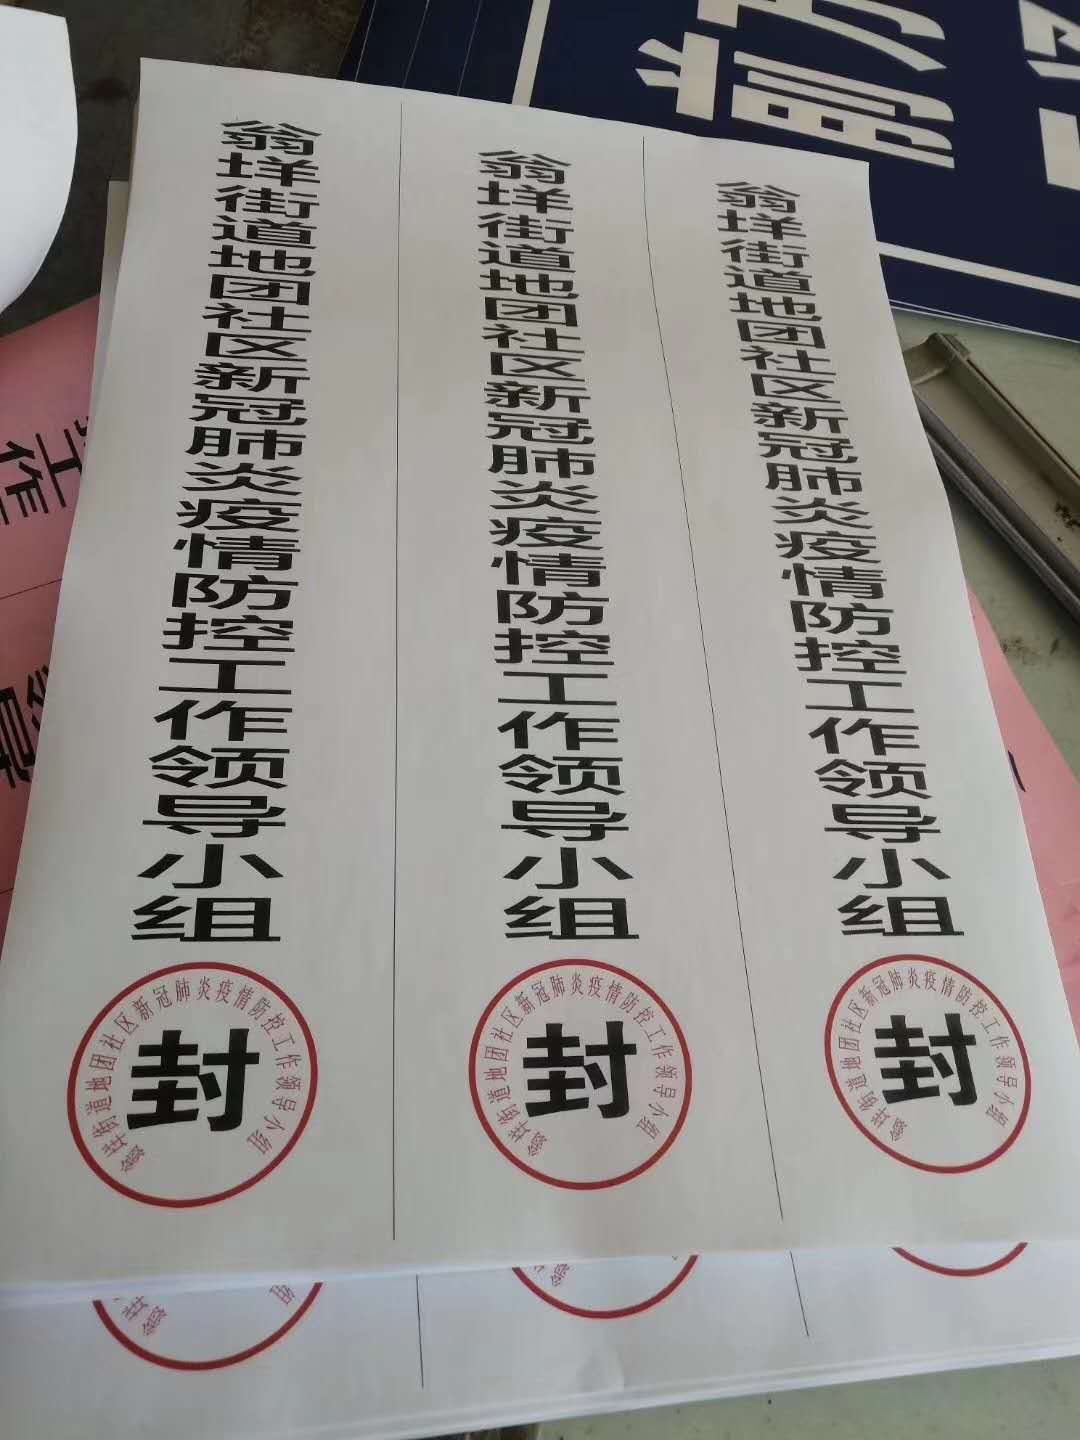 翁垟街道地团社区新冠肺炎疫情防控工作领导小组
翁垟街道地团社区新冠肺炎疫情防控工作领导小组
封
翁垟街道地团社区新冠肺炎疫情防控工作领导小组
翁垟街道地团社区新冠肺炎疫情防控工作领导小组
封
翁垟街道地团社区新冠肺炎疫情防控工作领导小组
翁垟街道地团社区新冠肺炎疫情防控工作领导小组
封
工作
导
翁垟
组
翁